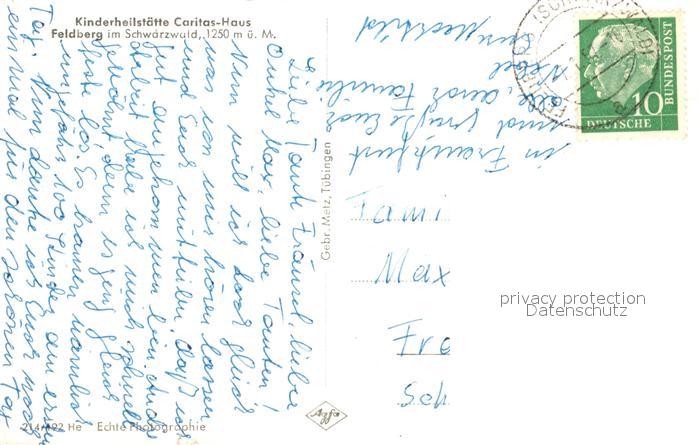 Kinderheilstätte Caritas-Haus
Feldberg im Schwarzwald, 1250 m ü. M.
Liebe Tante Fränzel, liebe
Onkel Max, liebe Tanten!
Nun will ich doch gleich
was von mir hören lassen
und Euch mitteilen, daß ich
gut angekommen bin.
dabei habe ich mich schnelle
gewöhnt, denn es ging gleich
feste los. Es kamen nämlich
ungefähr 100 Kinder am ersten
Tag. Nun danke ich Euch noch
einmal für den schönen Tag
in Frankfurt
und grüße Euch
alle, auch Familie
Gebr. Metz, Tübingen
Fami
Max
Fre
DEUTSCHE
BUNDESPOST
10
privacy protection
Datenschutz
Agfa
214/492 He Echte Photographie